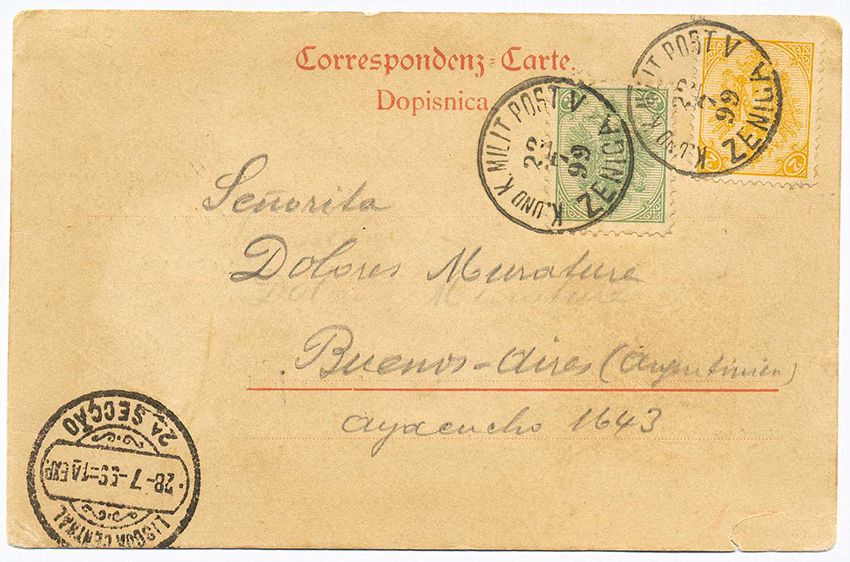 Correspondenz-Carte.
Dopisnica
K. UND K. MILIT POST V
22
7
99
ZENICA
K. UND K. MILIT POST V
22
7
99
ZENICA
Señorita
Dolores Murature
Buenos-Aires (Argentinien)
Ayacucho 1643
LISBOA CENTRAL
28-7-99-1A EXP.
2A SECÇÃO